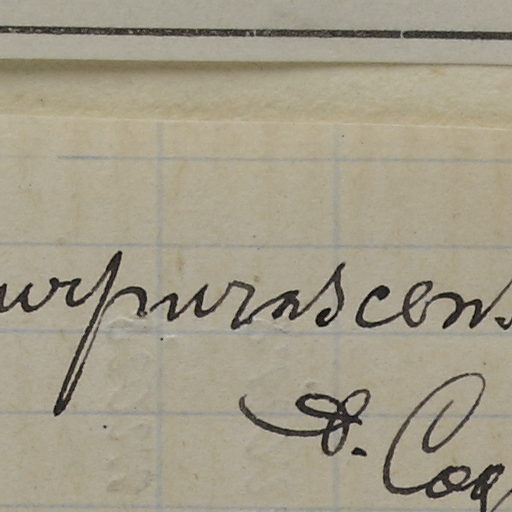 urpurascens
D. Cog